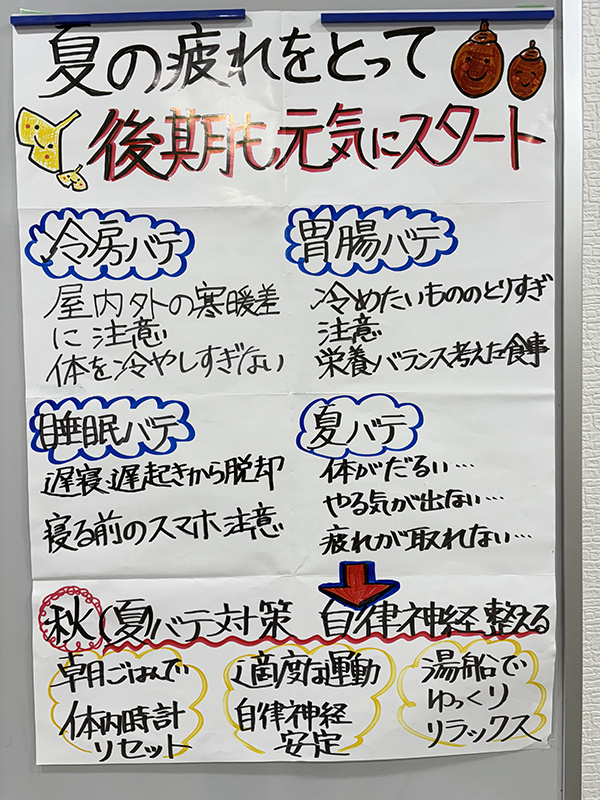 夏の疲れをとって
後期も元気にスタート
冷房バテ
屋内外の寒暖差
に注意
体を冷やしすぎない
胃腸バテ
冷めたいもののとりすぎ
注意
栄養バランス考えた食事
睡眠バテ
遅寝・遅起きから脱却
寝る前のスマホ注意
夏バテ
体がだるい…
やる気が出ない…
疲れが取れない…
秋(夏)バテ対策 自律神経整える
朝ごはんで
体内時計
リセット
適度な運動
自律神経
安定
湯船で
ゆっくり
リラックス